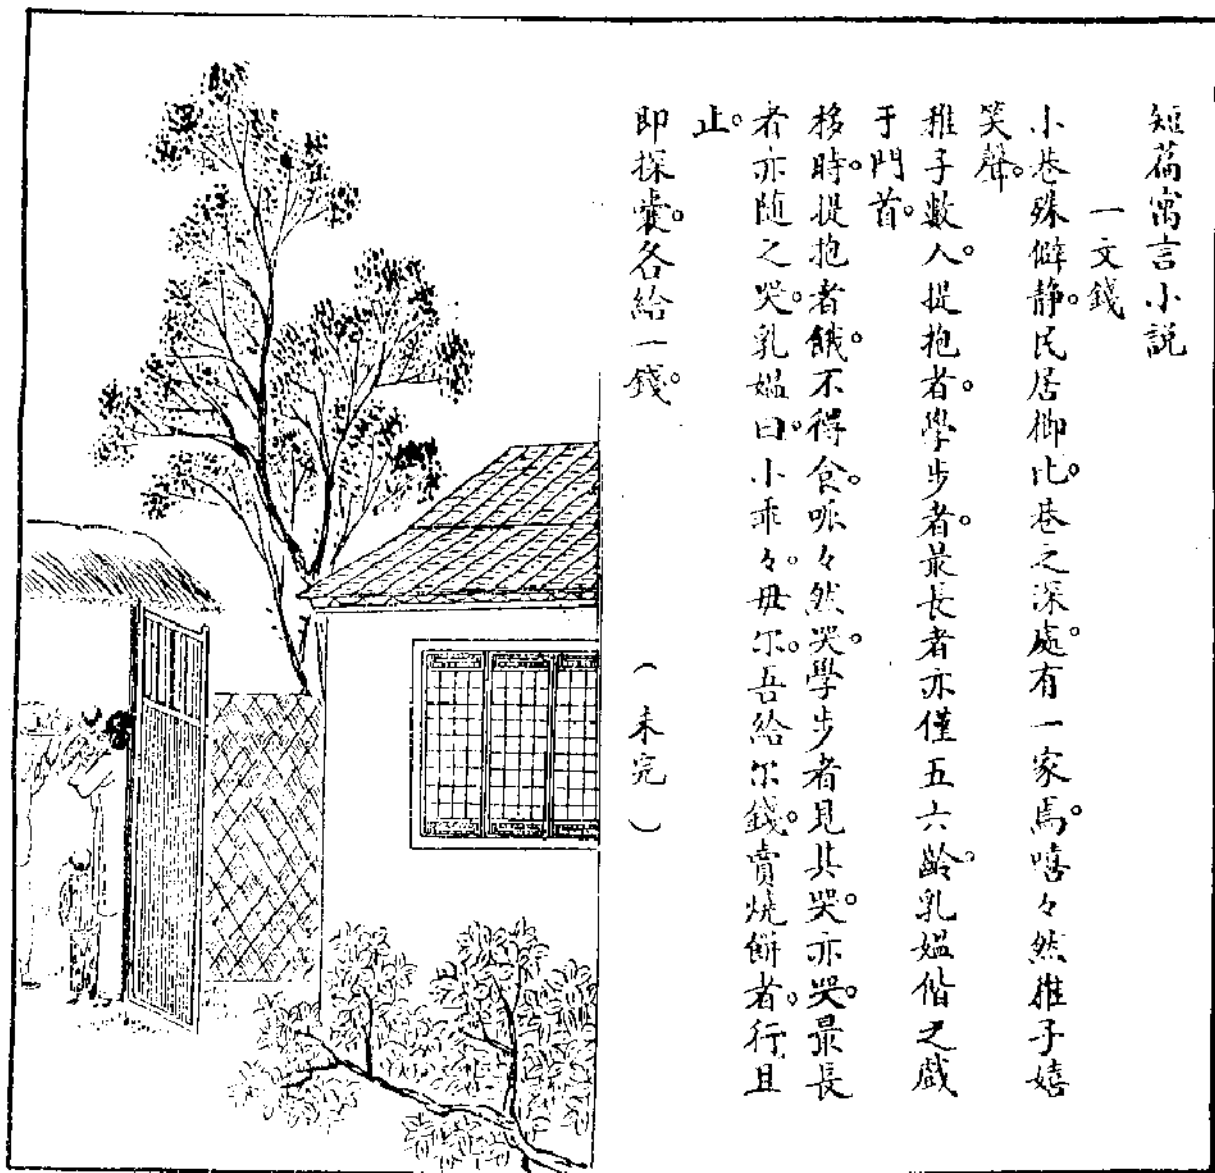 短篇寓言小說
一文錢
小巷殊僻静。民居櫛比。巷之深處。有一家焉。嘻々然稚子嬉
笑聲。
稚子數人。提抱者。學步者。最長者亦僅五六齡。乳媼偕之戲
于門首。
移時。提抱者餓。不得食。呱々然哭。學步者見其哭。亦哭。最長
者亦随之哭。乳媼曰。小乖々。毋尓。吾給尓錢。賣燒餅者。行且
止。
即探囊。各給一錢。
(未完)